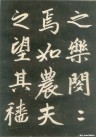 之樂閔〻
焉如農夫
之望其